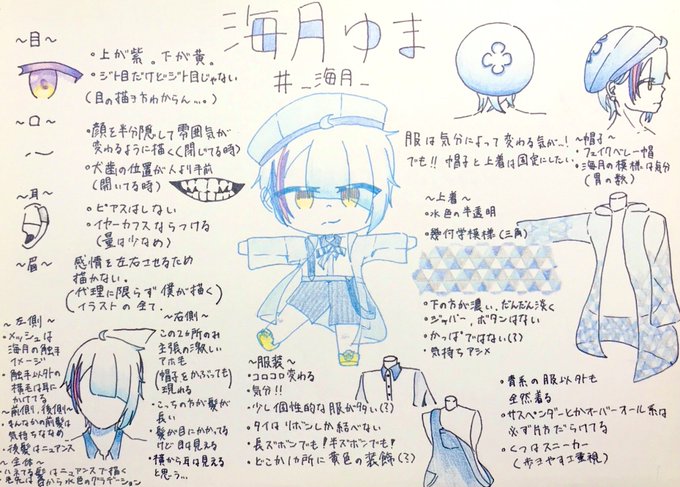 海月ゆま
#_海月_
～目～
・上が紫。下が黄。
・ジト目だけどジト目じゃない
(目の描き方わからん...。)
～口～
・顔を半分隠して雰囲気が
変わるように描く(閉じてる時)
・犬歯の位置が人より手前
(開いてる時)
～耳～
・ピアスはしない
・イヤーカフスならつける
(量は少なめ)
～眉～
感情を左右させるため
描かない。
(代理に限らず僕が描く
イラストの全て.)
～左側～
・メッシュは
海月の触手
イメージ
・触手以外の
横毛は耳に
かけてる
・前側,後側の
・まんなかの前髪は
気持ちななめ
・後髪はニュアンス
～全体～
・ハネてる髪はニュアンスで描く
・毛先は首から水色のグラデーション
～右側～
この2ヶ所のお
主張の激しい
アホ毛
(帽子をかぶっても)
現れる
・こっちの方が髪が
長い
・髪が目にかかって
るけど目は見える
・横から耳は見える
と思う...
～服装～
・コロコロ変わる
気分!!
・少し個性的な服が多い(?)
・タイはリボンしか結べない
・長ズボンでも!半ズボンでも!
・どこか1ヶ所に黄色の装飾(?)
服は気分によって変わる気が...!
でも!!帽子と上着は固定にしたい。
～帽子～
・フェイクベレー帽
・海月の模様は気分
(胃の数)
～上着～
・水色の半透明
・幾何学模様(三角)
・下の方が濃い,だんだん淡く
・ジッパー,ボタンはない
・かっぱではない(?)
・気持ちアシメ
・青系の服以外も
全然着る
・サスペンダーとかオーバーオール系は
必ず片方だらけてる
・くつはスニーカー
(歩きやすさ重視)